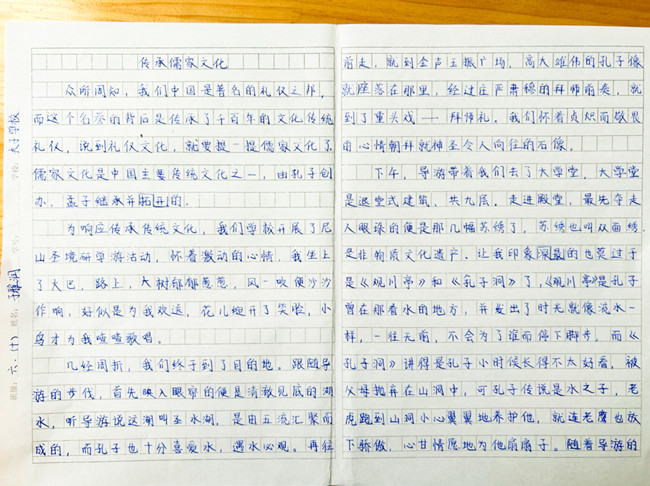 传承儒家文化
众所周知，我们中国是著名的礼仪之邦，
而这个名誉的背后是传承了千百年的文化传统
礼仪，说到礼仪文化，就要提一提儒家文化了
儒家文化是中国主要传统文化之一，由孔子创
办，孟子继承并拓开的。
为响应传承传统文化，我们学校开展了尼
山圣境研学游活动，怀着激动的心情，我坐上
了大巴，路上，大树郁郁葱葱，风一吹便沙沙
作响，好似是为我欢送，花儿绽开了笑脸，小
鸟才为我喳喳歌唱。
几经周折，我们终于到了目的地。跟随导
游的步伐，首先映入眼帘的便是清澈见底的湖
水，听导游说这湖叫圣水湖，是由五流汇聚而
成的，而孔子也十分喜爱水，遇水必观。再往
前走，就到金声玉振广场，高大雄伟的孔子像
就座落在那里，经过庄严肃穆的拜师前奏，就
到了重头戏——拜师礼。我们怀着炽而敬畏
的心情朝拜就神圣令人向往的石像。
下午，导游带着我们去了大学堂，大学堂
是退堂式建筑，共九层。走进殿堂，最先夺走
人眼球的便是那几幅苏绣了，苏绣也叫双面绣
是非物质文化遗产。让我印象深最的也莫过于
是《观川亭》和《孔子洞》了，《观川亭》是孔子
曾在那看水的地方，并发出了时光就像流水一
样，一往无前，不会为了谁而停下脚步。而《
孔子洞》讲得是孔子小时候长得不太好看，被
父母抛弃在山洞中，可孔子传说是水之子，老
虎跑到山洞小心翼翼地养护他，就连老鹰也放
下骄傲，心甘情愿地为他扇扇子。随着导游的
学校：
学号：
姓名：
班级：六·（十）